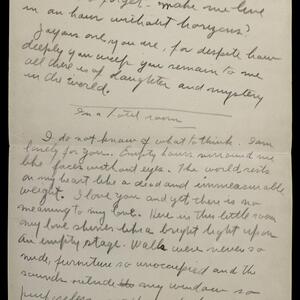 forget. make me live
in an hour without horizons?
Joyous one, you are, for despite how
deeply you weep you remain to me
all there is of laughter and mystery
in the world.
In a hotel room
I do not know of what to think. I am
lonely for you. Empty hours surround me
like faces without eyes. The world rests
on my heart like a dead and immeasurable
weight. I love you and yet there is no
meaning to my love. Here in this little room
my love shines like a bright light upon
an empty stage. Walls were never so
nude, furniture so unoccupied and the
sounds outside my window so